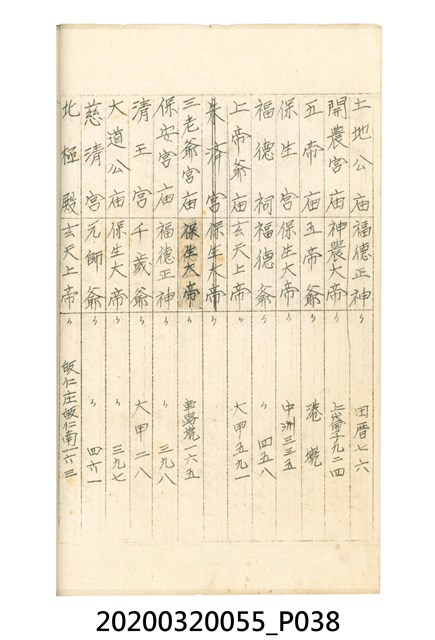 土地公廟 福德正神 〃 田厝七六
開農宮廟 神農大帝 〃 九二四
五帝廟 五帝爺 〃 港墘
保生宮 保生大帝 〃 中洲三三五
福德祠 福德爺 〃 〃 四五八
上帝爺廟 玄天上帝 〃 大甲五九一
朱濟宮 保生大帝 〃
三老爺宮廟 保生大帝 〃 一六五
保安宮廟 福德正神 〃 〃 三九八
清王宮 千歲爺 〃 大甲二八
大道公廟 保生大帝 〃 〃 三九七
慈清宮 元帥爺 〃 〃 四六一
北極殿 玄天上帝 〃 皈仁庄皈仁南一六三
20200320055_P038